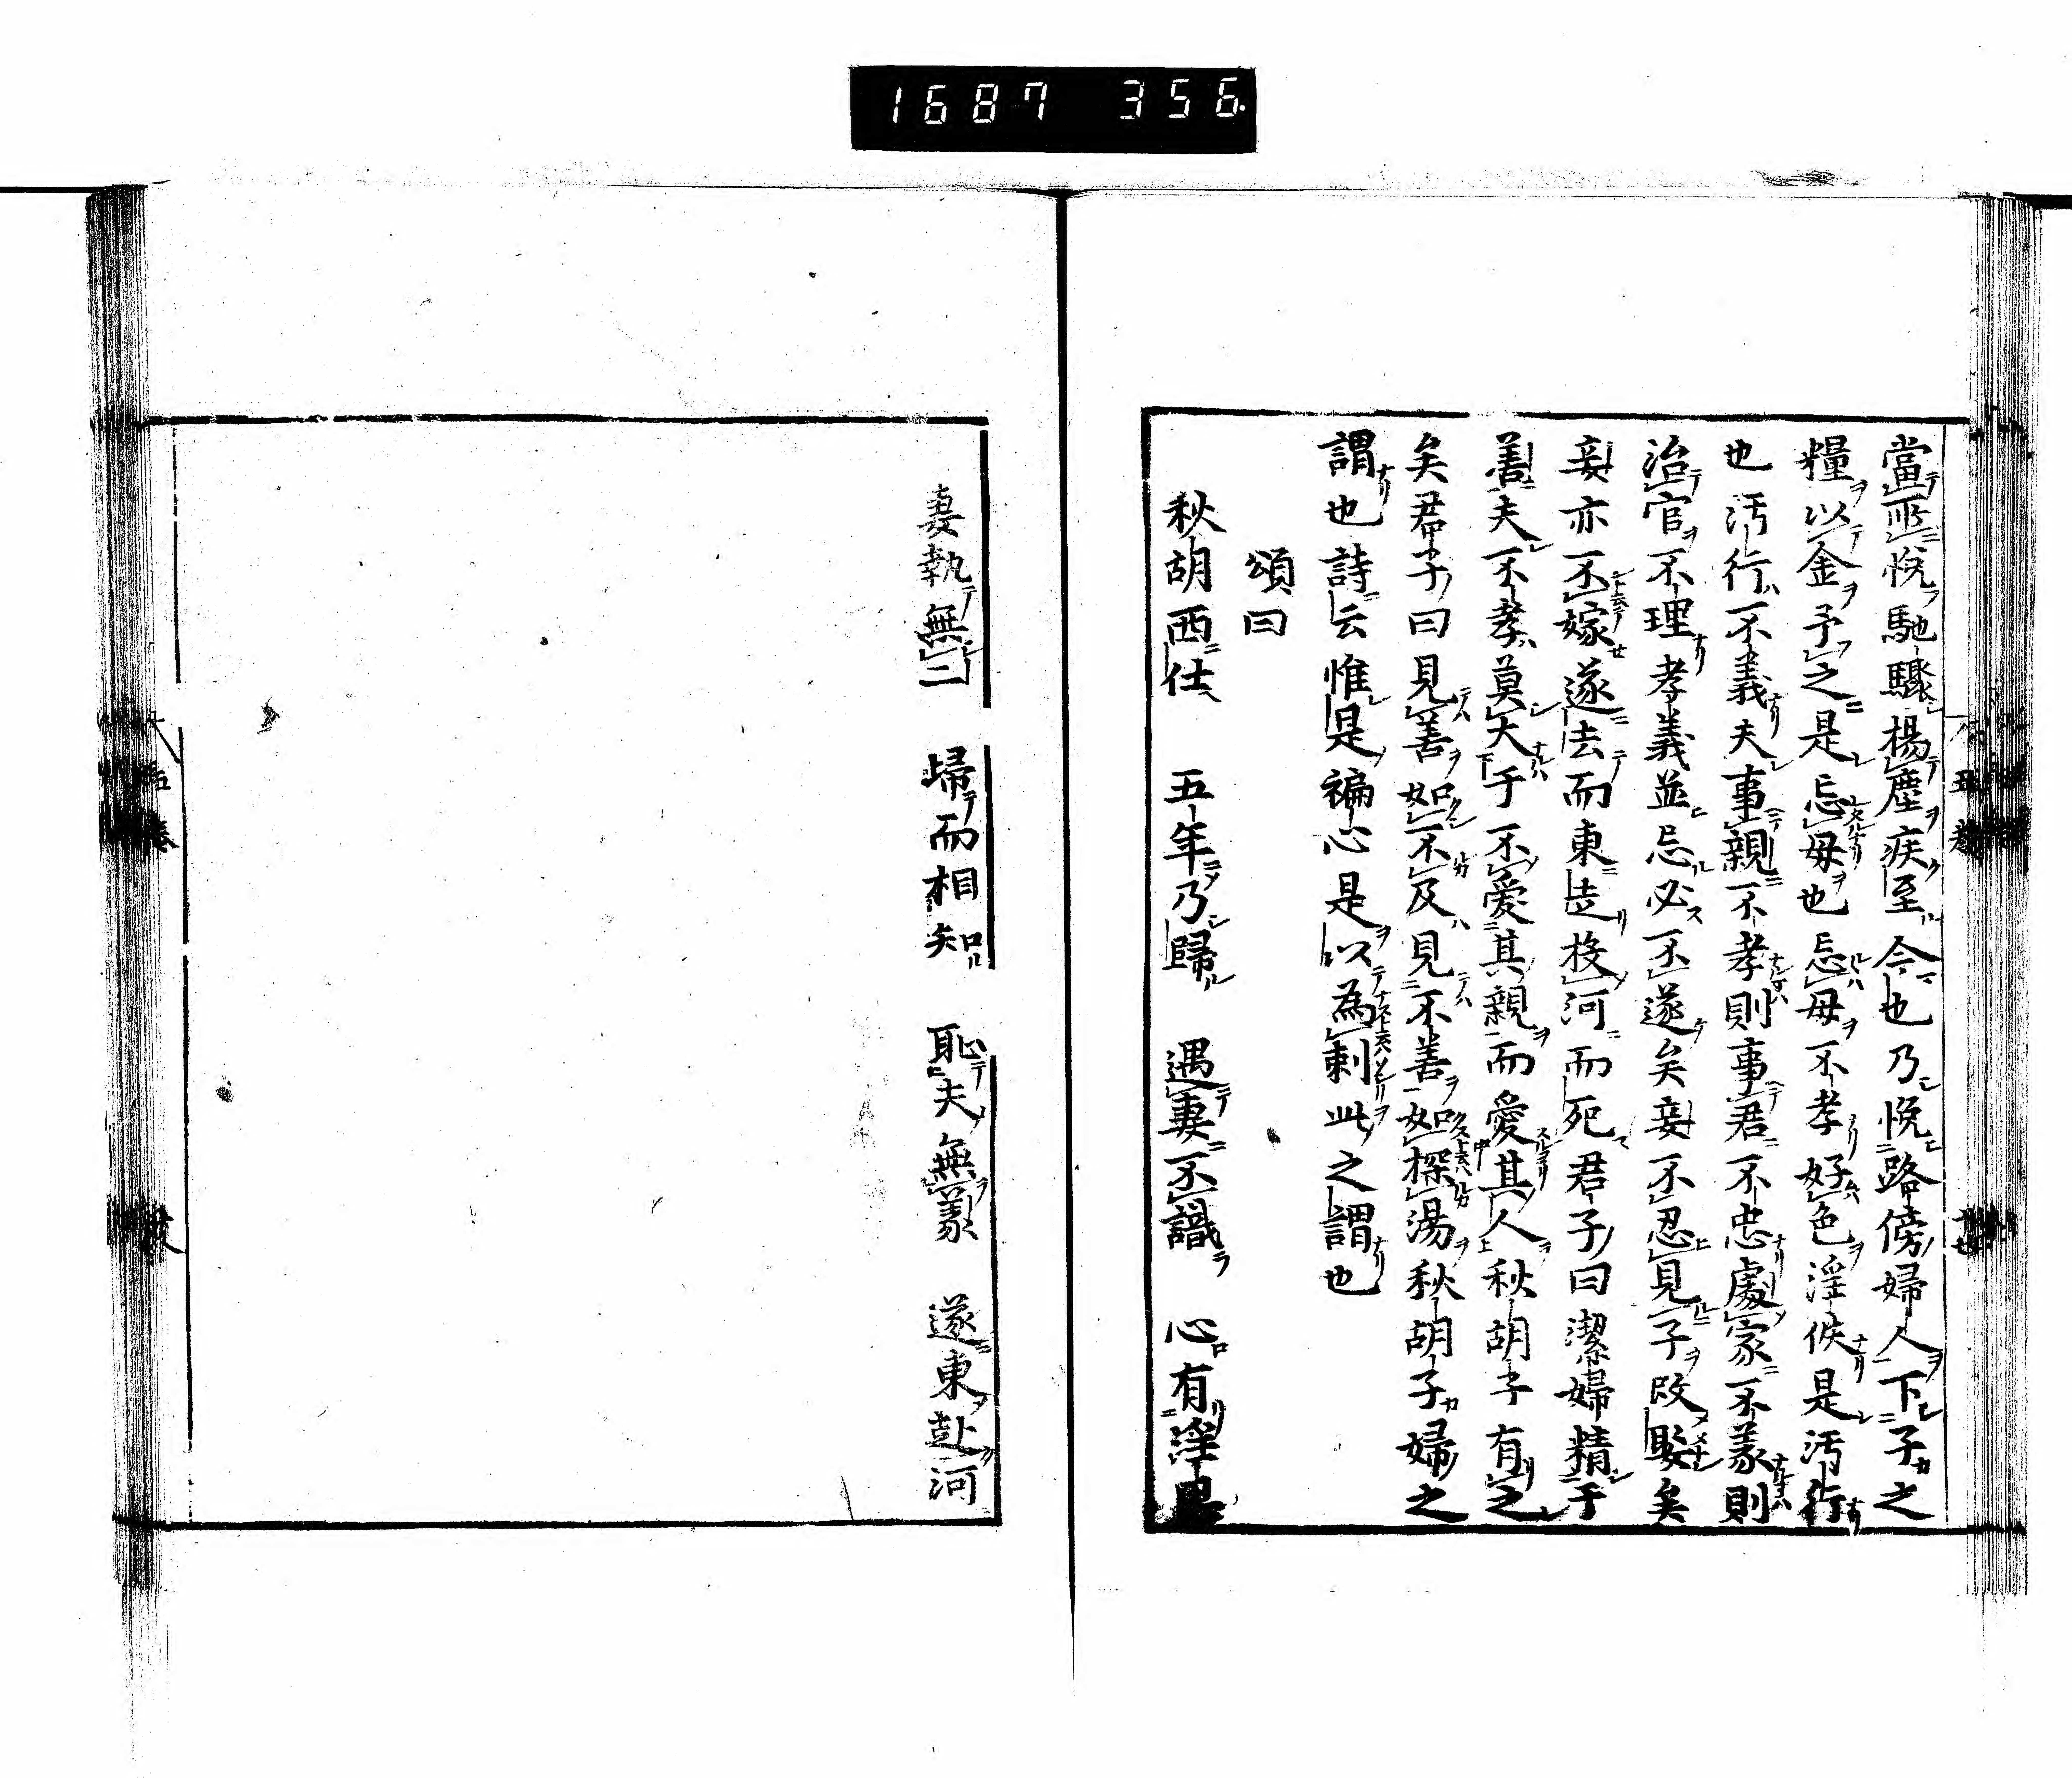 1687 356
當所悅馳驟揚塵疾至今也乃悅路傍婦人下子之
糧以金予之是忘母也忘母不孝好色淫佚是汚行
也汚行不義夫事親不孝則事君不忠處家不義則
治官不理孝義並忘必不遂矣妾不忍見子改娶矣
妾亦不嫁遂去而東走投河而死君子曰潔婦精于
善夫不孝莫大于不愛其親而愛其人秋胡子有之
矣君子曰見善如不及見不善如探湯秋胡子婦之
謂也詩云惟是褊心是以為刺此之謂也
頌曰
秋胡西仕　五年乃歸　遇妻不識　心有淫思
妻執無二　歸而相知　恥夫無義　遂東赴河